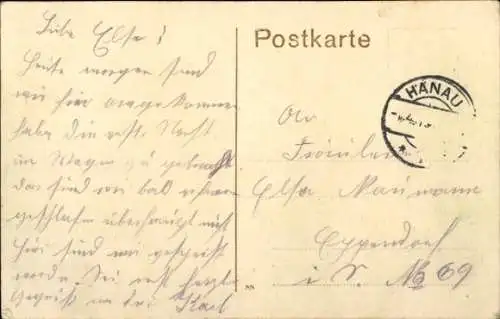 Liebe Else!
Heute morgen sind
wir hier angekommen
habe die erste Nacht
im Wagen zu gebracht
das sind wir bald
geschlafen überhaupt nicht
hier sind wir gespeist
worden. Sei recht herzl.
gegrüßt von Karl
Postkarte
HANAU
An
Fräulein
Elsa Naumann
Eppendorf
i. S. No 69